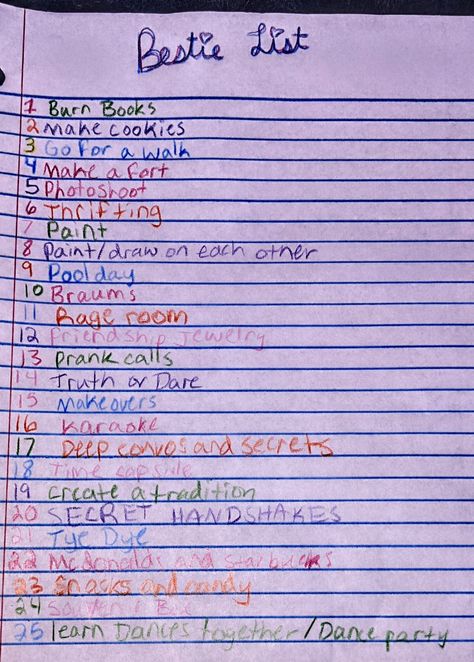 Bestie List
1 Burn Books
2 Make cookies
3 Go for a walk
4 Make a fort
5 Photoshoot
6 Thrifting
7 Paint
8 Paint/draw on each other
9 Pool day
10 Braums
11 Rage room
12 Friendship jewelry
13 Prank calls
14 Truth or Dare
15 Makeovers
16 Karaoke
17 Deep convos and secrets
18 Time capsule
19 Create a tradition
20 SECRET HANDSHAKES
21 Tye Dye
22 McDonalds and Starbucks
23 Snacks and candy
24
25 learn Dances together/Dance party